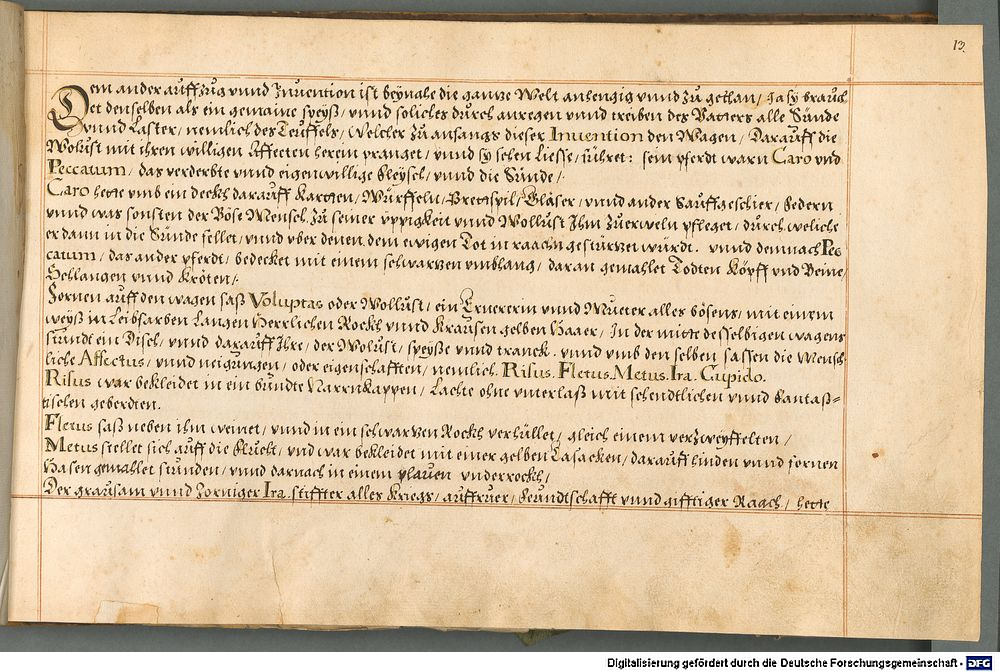 13.
Dem ander auffzug vnnd Inuention ist beynahe die gantze Welt anhengig vnnd zu gethan, Ja sy brauch
et denselben als ein gemaine speyß, vnnd soliches durch anregen vnnd treiben des Vatters alle Sünde
vnnd Laster, nemlich des Teuffels, Welcher zu anfangs dieser Inuention den Wagen, Darauff die
Wolust mit ihren willigen Affecten herein pranget, vnnd sy sehen Liesse, führet: sein pferdt warn Caro vnd
Peccatum, das verderbte vnnd eigenwillige fleysch, vnnd die Sünde,
Caro hette vmb ein deckh darauff Kartten, Würffeln, Brettspil, Gläser, vnnd ander Sauffgeschier, federn
vnnd was sonsten der Böse Mensch zu seiner vppigkeit vnnd Wollust Ihm zuerweln pfleget, durch weliche
er dann in die Sünde fellet, vnnd vber denen dem ewigen Tot in raachn gestürtzet würdt. vnnd demnach Pec
catum, das ander pferdt, bedecket mit einem schwartzen vmbhang, daran gemahlet Todten Köpff vnd Beine,
Schlangen vnnd Kröten,
Fornen auff den wagen saß Voluptas oder Wollust, ein Ernererin vnnd Mutter alles bösens, mit einem
weyß in Leibfarben Langen Herrlichen Rockh vnnd Krausen gelben Haaer, In der mitte desselbigen wagens
stundt ein Disch, vnnd darauff Ihre, der Wolust, speyße vnnd tranck. vnnd vmb den selben sassen die Mensch
liche Affectus, vnnd neigungen, oder eigenschafften, nemlich. Risus. Fletus. Metus. Ira. Cupido.
Risus war bekleidet in ein bundte Narrnkappen, Lachte ohne vnterlaß mit schendtlichen vnnd fantaß=
tischen geberdten.
Fletus saß neben ihm weinet, vnnd in ein schwartzen Rockh verhüllet, gleich einem verzweyffelten,
Metus stellet sich auff die flucht, vnd war bekleidet mit einer gelben Casacken, darauff hinden vnnd fornen
Hasen gemahlet stunden, vnnd darnach in einem plauen vnderrockh,
Der grausam vnnd zorniger Ira stiffter alles Kriegs, auffruer, feundtschafft vnnd gifftiger Raach, hette
Digitalisierung gefördert durch die Deutsche Forschungsgemeinschaft - DFG